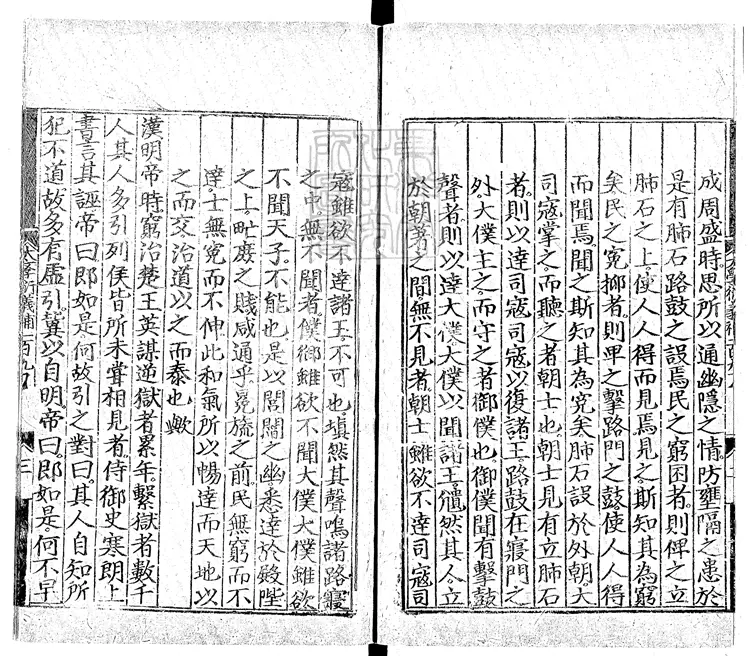 成周盛時思所以通幽隱之情防壅隔之患於
是有肺石路鼓之設焉民之窮困者則俾之立
肺石之上使人人得而見焉見之斯知其為窮
矣民之冤抑者則畀之擊路門之鼓使人人得
而聞焉聞之斯知其為冤矣肺石設於外朝大
司寇掌之而聽之者朝士也朝士見有立肺石
者則以達司寇司寇以復諸王路鼓在寢門之
外大僕主之而守之者御僕也御僕聞有擊鼓
聲者則以達大僕大僕以聞諸王儼然其人立
於朝著之間無不見者朝士雖欲不達司寇司
寇雖欲不達諸王不可也填然其聲鳴諸路寢
之中無不聞者僕御雖欲不聞大僕大僕雖欲
不聞天子不能也是以閭閻之幽悉達於殿陛
之上甿庶之賤咸通乎冕旒之前民無窮而不
達士無冤而不伸此和氣所以暢達而天地以
之而交治道以之而泰也歟
漢明帝時窮治楚王英謀逆獄者累年繫獄者數千
人其人多引列侯皆所未嘗相見者侍御史寒朗上
書言其誣帝曰即如是何故引之對曰其人自知所
犯不道故多有虛引冀以自明帝曰即如是何不早
大學衍義補 百九 三